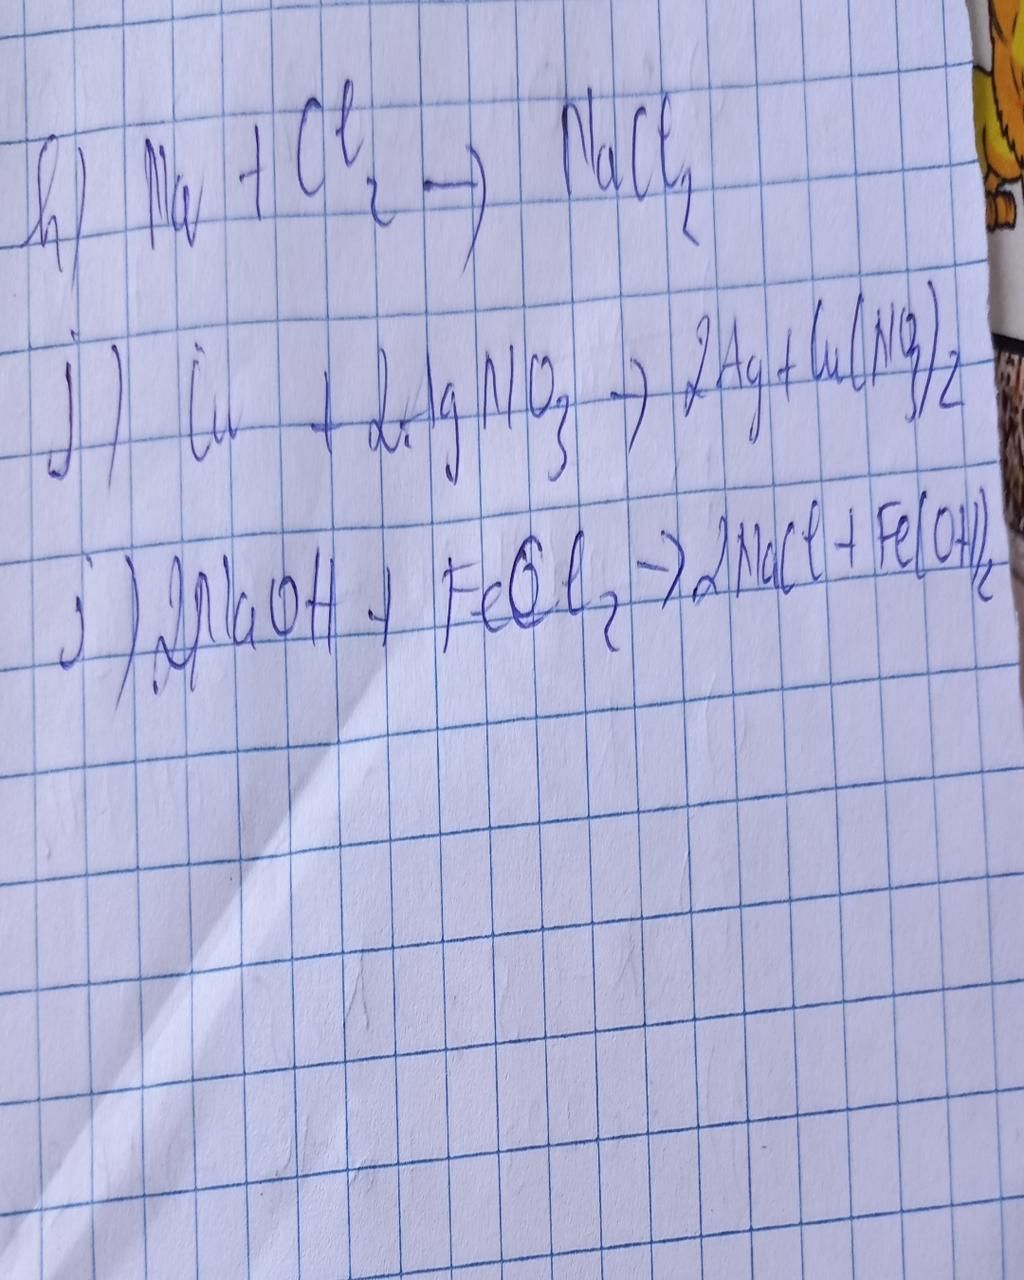 h) Na + Cl₂ → NaCl₂
j) Cu + 2AgNO₃ → 2Ag + Cu(NO₃)₂
i) 2NaOH + FeCl₂ → 2NaCl + Fe(OH)₂